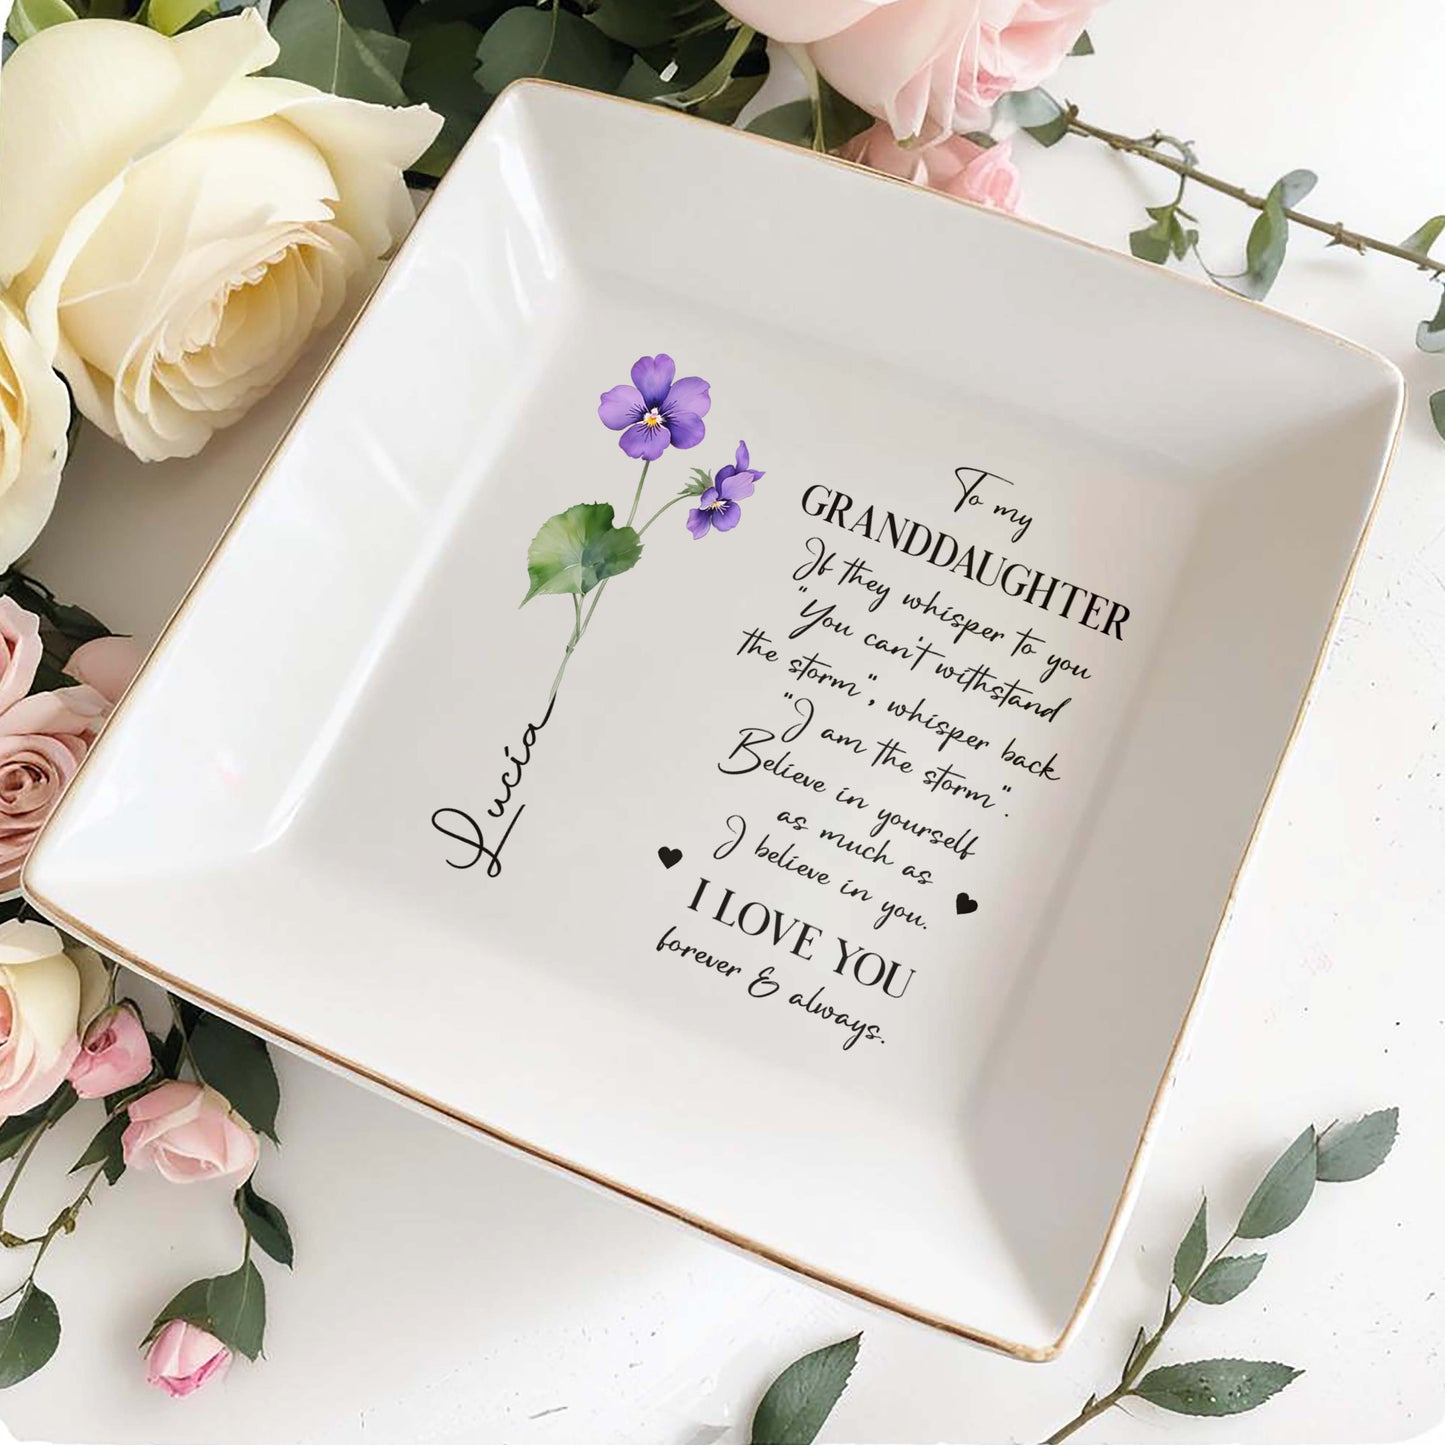 Lucía
To my
GRANDDAUGHTER
If they whisper to you
"You can't withstand
the storm", whisper back
"I am the storm".
Believe in yourself
as much as
I believe in you.
I LOVE YOU
forever & always.